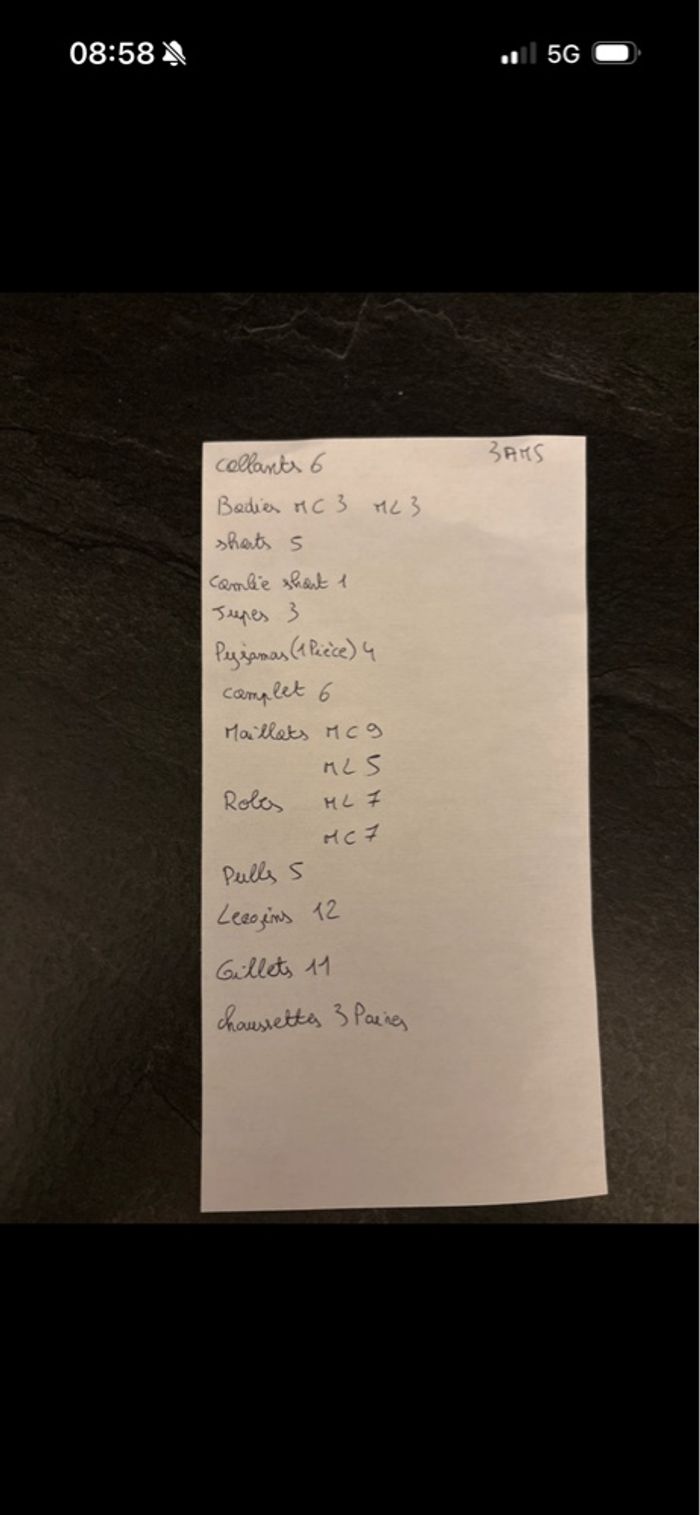 08:58
5G
3 ANS
Collants 6
Bodies MC 3 ML 3
shorts 5
combie short 1
Jupes 3
Pyjamas (1 Pièce) 4
complet 6
Maillots MC 9
ML 5
Robes ML 7
MC 7
Pulls 5
Leegins 12
Gillets 11
chaussettes 3 Paires